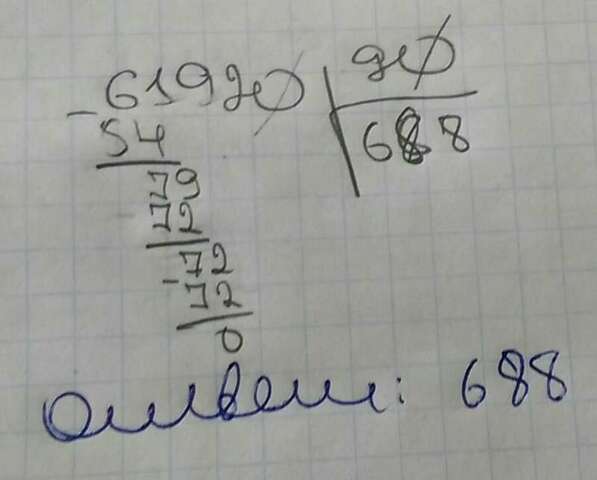 61920 | 90
54 | 688
79
72
72
72
0
Ответ: 688